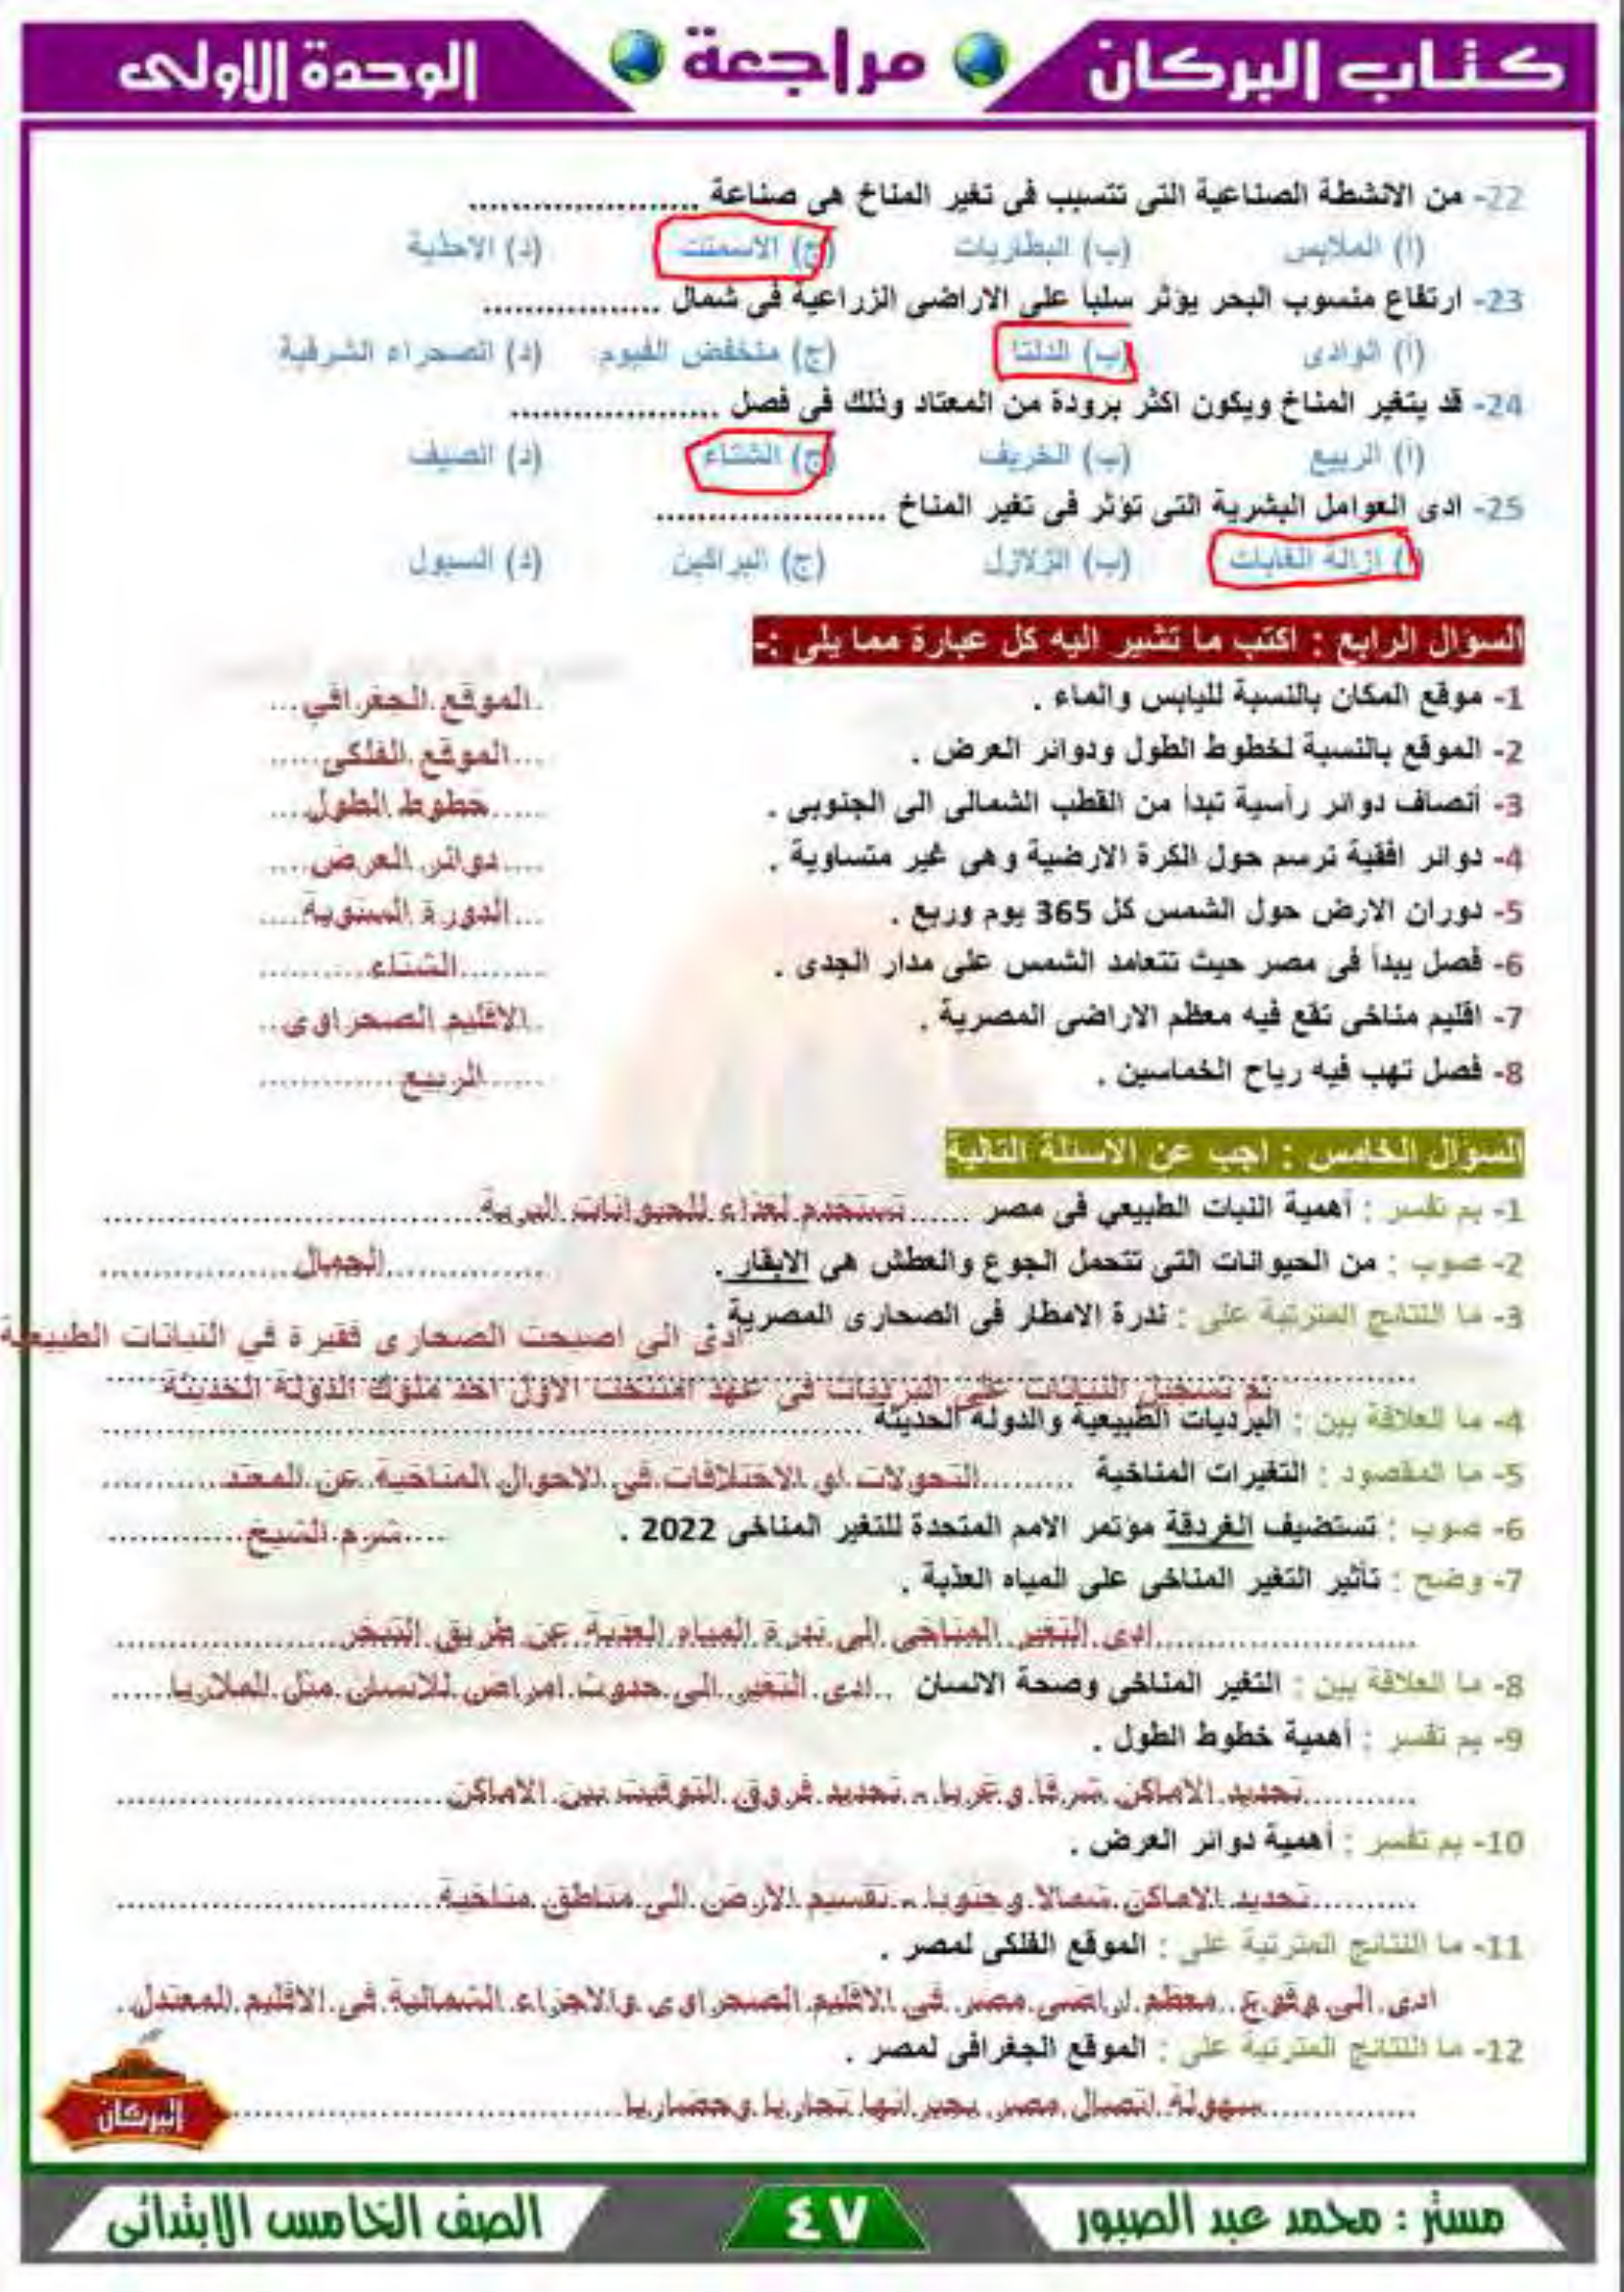 كتاب البركان
مراجعة
الوحدة الاولى
22- من الانشطة الصناعية التى تتسبب فى تغير المناخ هى صناعة ......................
(أ) الملابس (ب) البطاريات (ج) الاسمنت (د) الاحذية
23- ارتفاع منسوب البحر يؤثر سلبا على الاراضى الزراعية فى شمال .................
(أ) الوادى (ب) الدلتا (ج) منخفض الفيوم (د) الصحراء الشرقية
24- قد يتغير المناخ ويكون اكثر برودة من المعتاد وذلك فى فصل ....................
(أ) الربيع (ب) الخريف (ج) الشتاء (د) الصيف
25- ادى العوامل البشرية التى تؤثر فى تغير المناخ ......................
(أ) ازالة الغابات (ب) الزلازل (ج) البراكين (د) السيول
السؤال الرابع : اكتب ما تشير اليه كل عبارة مما يلى :-
1- موقع المكان بالنسبة لليابس والماء . الموقع الجغرافي
2- الموقع بالنسبة لخطوط الطول ودوائر العرض . الموقع الفلكى
3- أنصاف دوائر رأسية تبدأ من القطب الشمالى الى الجنوبى . خطوط الطول
4- دوائر افقية ترسم حول الكرة الارضية وهى غير متساوية . دوائر العرض
5- دوران الارض حول الشمس كل 365 يوم وربع . الدورة السنوية
6- فصل يبدأ فى مصر حيث تتعامد الشمس على مدار الجدى . الشتاء
7- اقليم مناخى تقع فيه معظم الاراضى المصرية . الاقليم الصحراوى
8- فصل تهب فيه رياح الخماسين . الربيع
السؤال الخامس : اجب عن الاسئلة التالية
1- بم تفسر : أهمية النبات الطبيعي فى مصر ...... تستخدم لغذاء للحيوانات البرية
2- صوب : من الحيوانات التى تتحمل الجوع والعطش هى الابقار . الجمال
3- ما النتائج المترتبة على : ندرة الامطار فى الصحارى المصرية
ادى الى اصبحت الصحارى فقيرة في النباتات الطبيعية
تم تسجيل النباتات على البرديات فى عهد امنتحت الاول احد ملوك الدولة الحديثة
4- ما العلاقة بين : البرديات الطبيعية والدولة الحديثة
5- ما المقصود : التغيرات المناخية ......... التحولات او الاختلافات في الاحوال المناخية عن المعتد
6- صوب : تستضيف الغردقة مؤتمر الامم المتحدة للتغير المناخى 2022 . شرم الشيخ
7- وضح : تأثير التغير المناخى على المياه العذبة .
ادى التغير المناخى الى ندرة المياه العذبة عن طريق التبخر
8- ما العلاقة بين : التغير المناخى وصحة الانسان .. ادى التغير الى حدوث امراض للانسان مثل الملاريا
9- بم تفسر : أهمية خطوط الطول .
تحديد الاماكن شرقا وغربا - تحديد فروق التوقيت بين الاماكن
10- بم تفسر : أهمية دوائر العرض .
تحديد الاماكن شمالا وجنوبا - تقسيم الارض الى مناطق مناخية
11- ما النتائج المترتبة على : الموقع الفلكى لمصر .
ادى الى وقوع معظم اراضى مصر فى الاقليم الصحراوى والاجزاء الشمالية فى الاقليم المعتدل
12- ما النتائج المترتبة على : الموقع الجغرافى لمصر .
سهولة اتصال مصر بجيرانها تجاريا وحضاريا
البركان
مستر : محمد عبد الصبور
٤٧
الصف الخامس الابتدائى